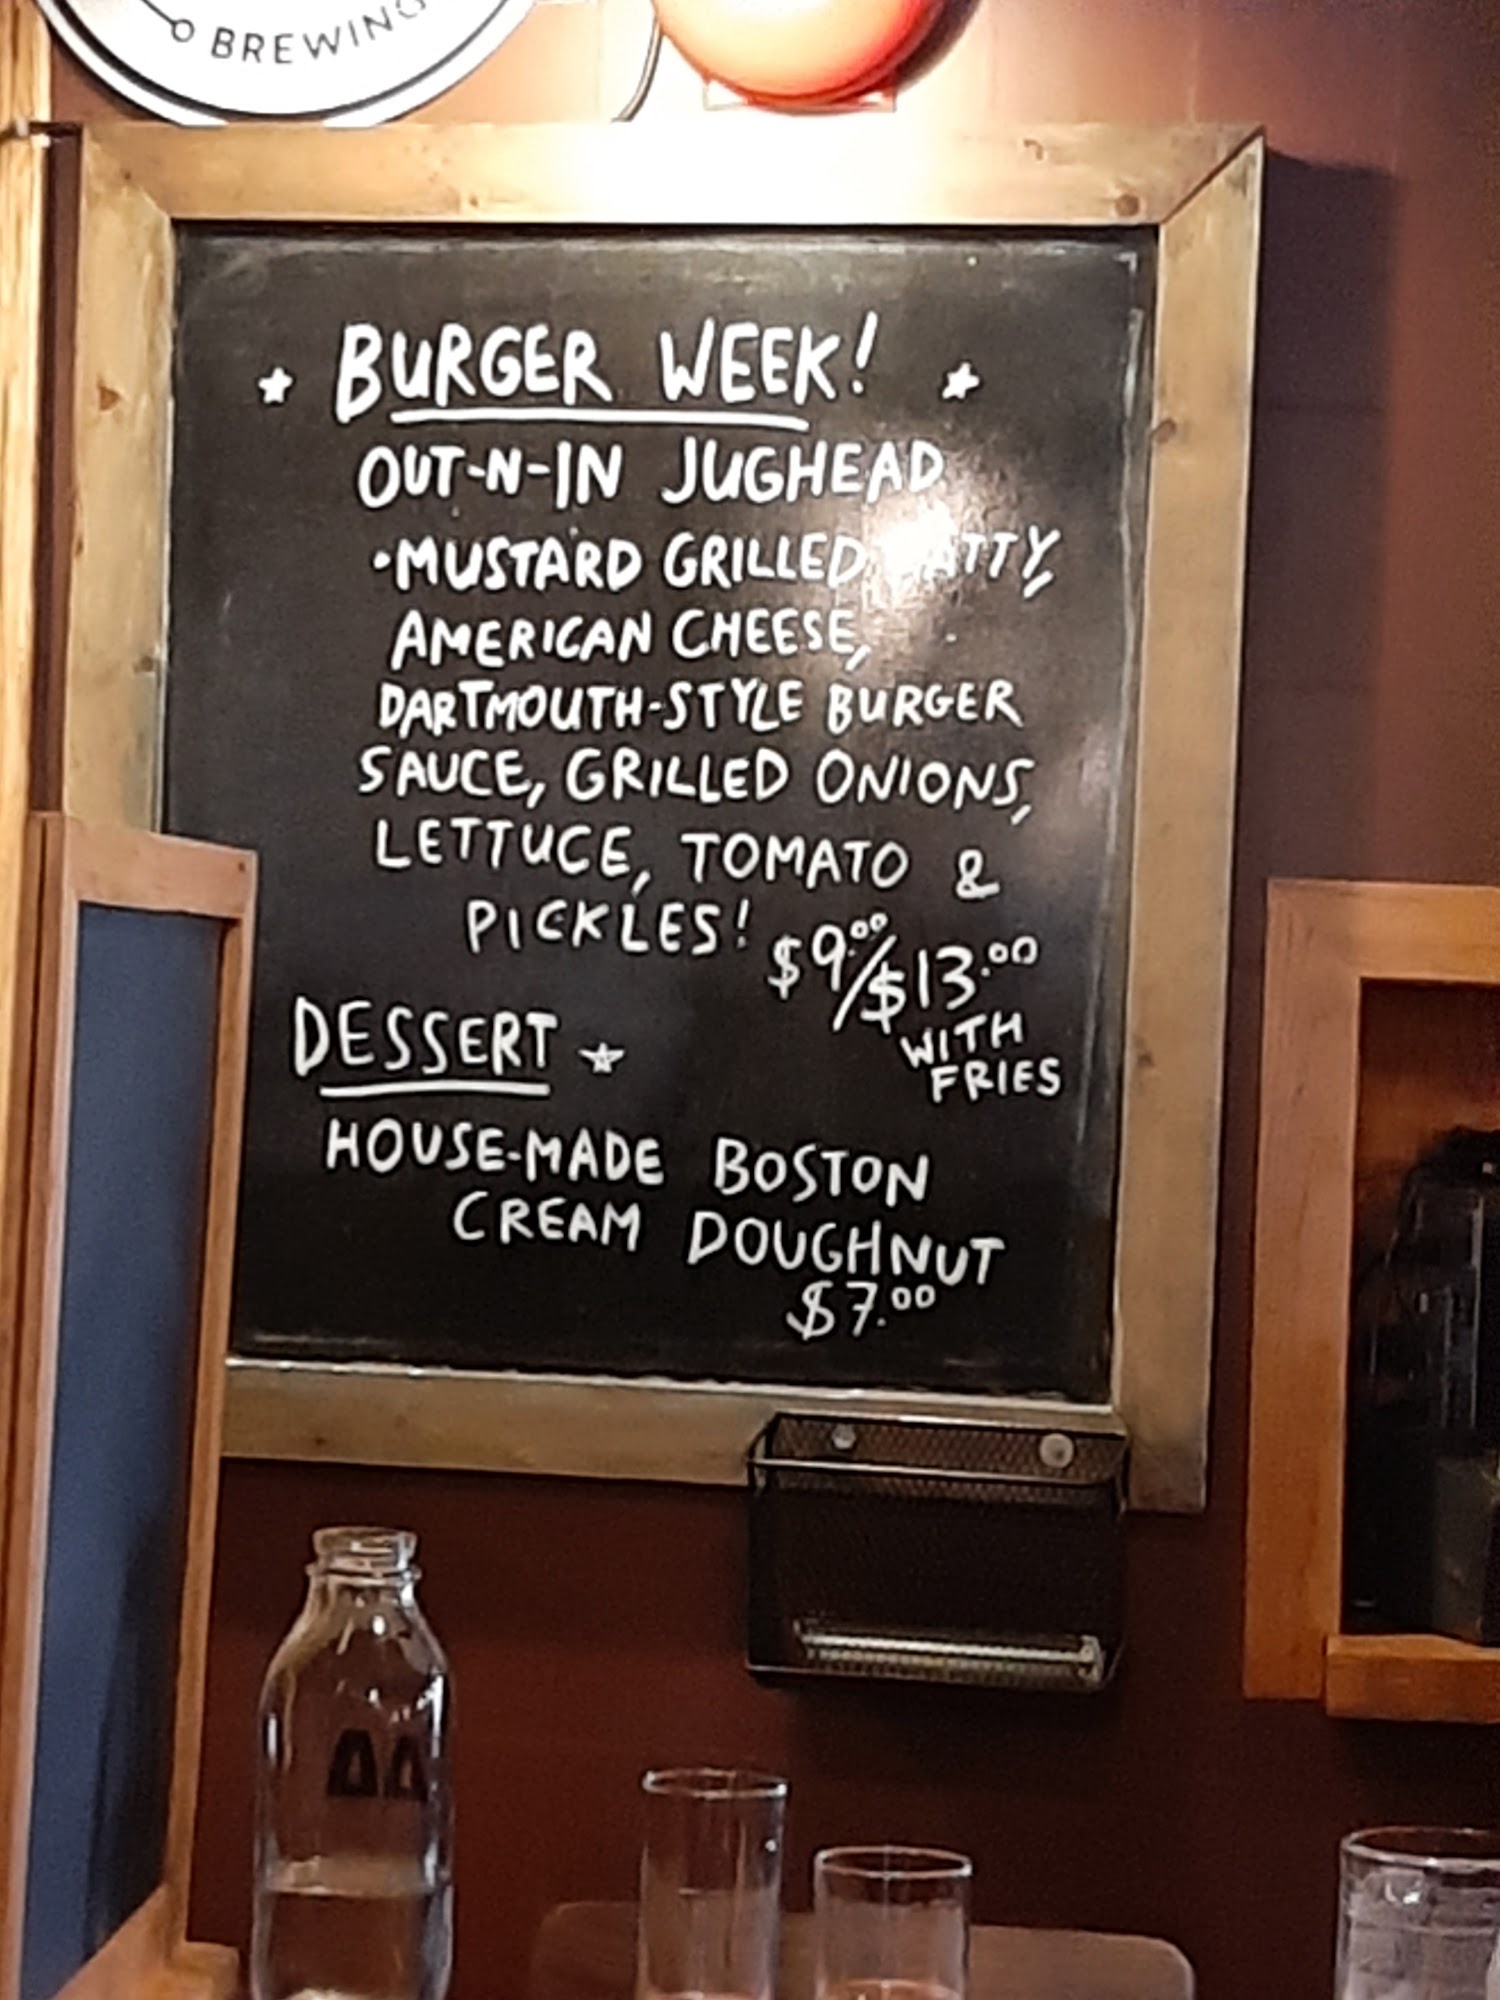 BREWING
BURGER WEEK!
OUT-N-IN JUGHEAD
•MUSTARD GRILLED PATTY,
AMERICAN CHEESE,
DARTMOUTH-STYLE BURGER
SAUCE, GRILLED ONIONS,
LETTUCE, TOMATO &
PICKLES!
$9.00/$13.00
WITH
FRIES
DESSERT
HOUSE-MADE BOSTON
CREAM DOUGHNUT
$7.00